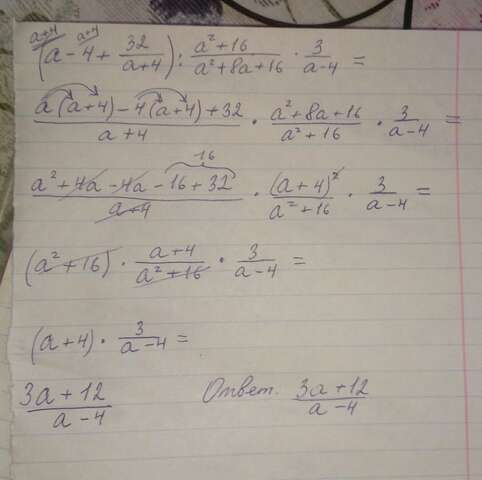 a+4 a+4
(a - 4 + 32/(a+4)) : (a²+16)/(a²+8a+16) · 3/(a-4) =
(a(a+4) - 4(a+4) + 32)/(a+4) · (a²+8a+16)/(a²+16) · 3/(a-4) =
16
(a² + 4a - 4a - 16 + 32)/(a+4) · (a+4)²/(a²+16) · 3/(a-4) =
(a²+16) · (a+4)/(a²+16) · 3/(a-4) =
(a+4) · 3/(a-4) =
(3a+12)/(a-4) Ответ. (3a+12)/(a-4)